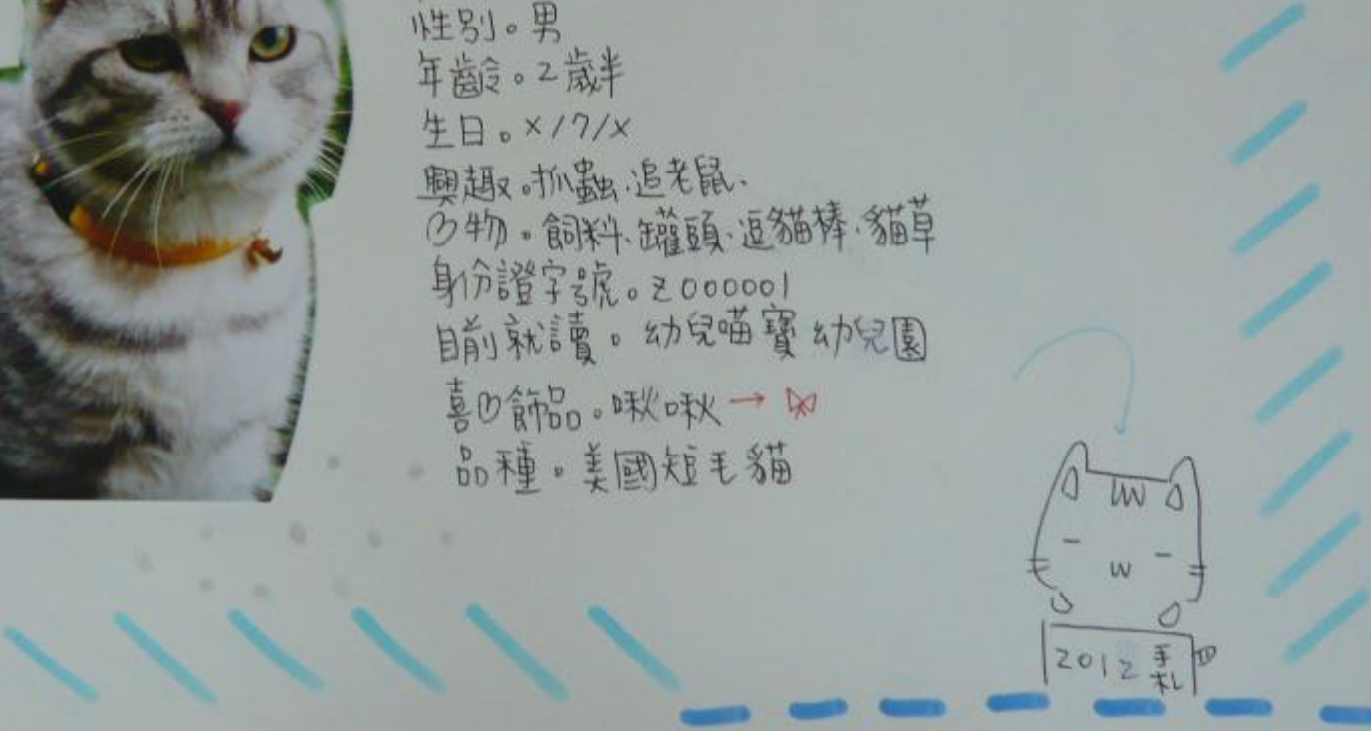 性別。男
年齡。2歲半
生日。x/7/x
興趣。抓蟲、追老鼠、
物。飼料、罐頭、逗貓棒、貓草
身份證字號。Z000001
目前就讀。幼兒喵寶幼兒園
喜飾品。啾啾→
品種。美國短毛貓
2012手札